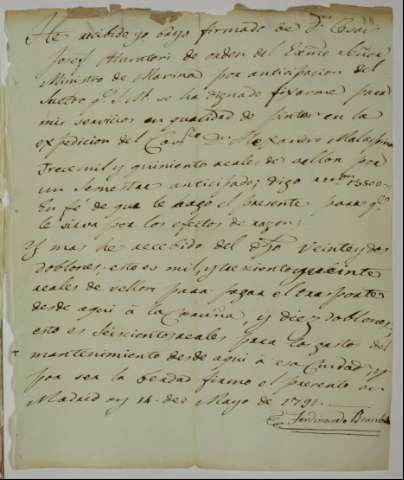 He recibido yo bajo firmado de Dn. Cesar
Josef Muratori de orden del Exmo Señor
Ministro de Marina por anticipacion del
Sueldo qe. S.M. se ha dignado fixarme para
mis servicios en qualidad de pintor en la
expedicion del Cavre. Dn. Alexandro Malaspina
Trece mil y quinientos reales de vellon por
un semestre anticipado; digo 13500
En fé de que le hago el presente para qe.
le sirva por los efectos de razon;
Y mas he recebido del dho veinte y dos
doblones, esto es mil y trescientos y veinte
reales de vellon para pagar el transporte
desde aqui à la Coruña, y diez doblones,
esto es seiscientos reales para la gasto del
mantenimiento desde aqui à esa Ciudad, y
por ser la berdad firmo el presente en
Madrid oy 14. de Mayo de 1791.
Ferdinando Brambila